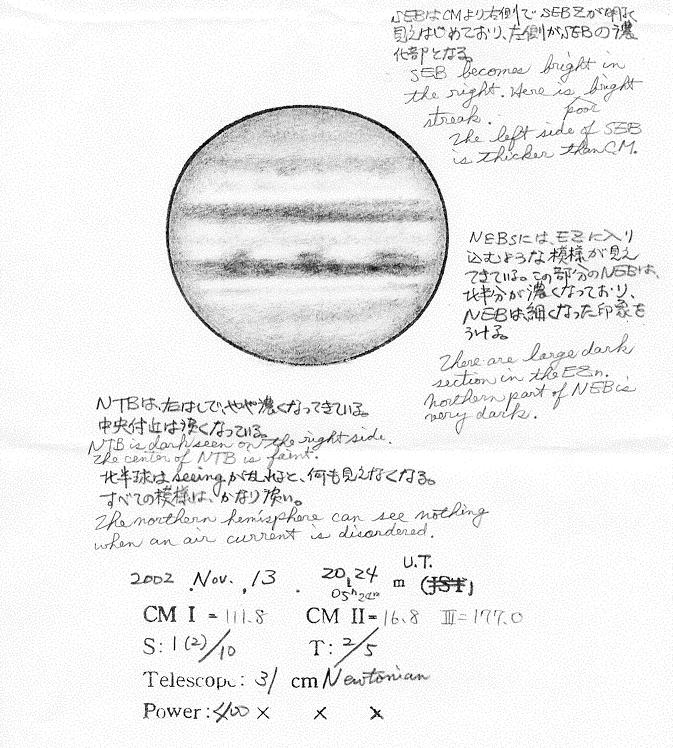 SEBはCMより右側でSEBZが明るく
見えはじめており、左側がSEBの濃
化部となる。
SEB becomes bright in
the right. Here is bright
poor
streak.
The left side of SEB
is thicker than CM.
NEBsには、EZに入り
込むような模様が見え
てきている。この部分のNEBは、
北半分が濃くなっており、
NEBは細くなった印象を
うける。
There are large dark
section in the EZn.
northern part of NEB is
very dark.
NTBは、右はしで、やや濃くなってきている。
中央付近は淡くなっている。
NTB is dark seen on the right side.
The center of NTB is faint.
北半球はseeingが乱れると、何も見えなくなる。
すべての模様は、かなり淡い。
The northern hemisphere can see nothing
when an air current is disordered.
U.T.
2002 .Nov. 13 . 20 24 m (JST)
05h 24m
CM I = 111.8 CM II = 16.8 III = 177.0
S: 1(2)/10 T: 2/5
Telescope: 31 cm Newtonian
Power: 400 × × ×